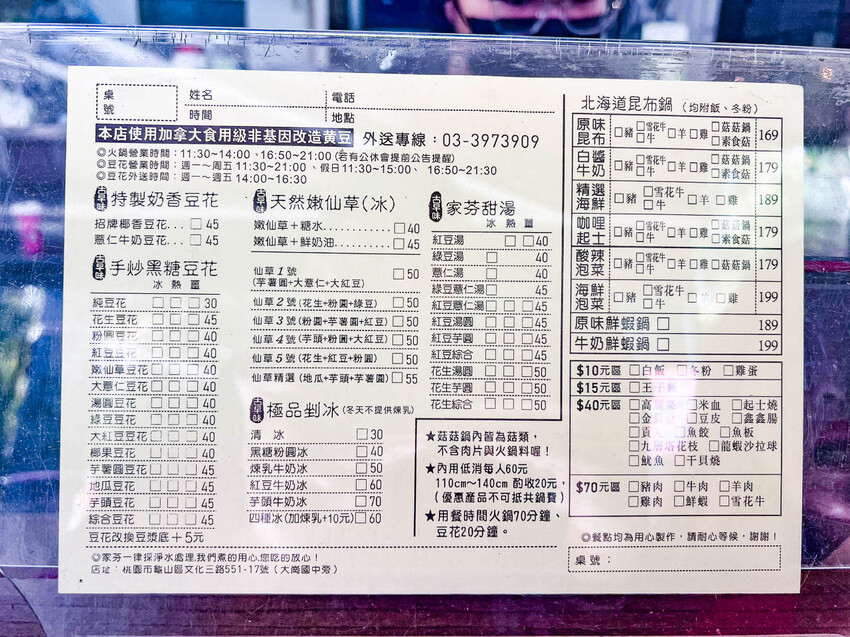 桌號
姓名
電話
時間
地點
本店使用加拿大食用級非基因改造黃豆 外送專線：03-3973909
◎火鍋營業時間：11:30~14:00、16:50~21:00 (若有公休會提前公告提醒)
◎豆花營業時間：週一~周五11:30~21:00、假日11:30~15:00、16:50~21:30
◎豆花外送時間：週一~週五14:00~16:30
古早味 特製奶香豆花
招牌椰香豆花...□45
薏仁牛奶豆花...□45
古早味 手炒黑糖豆花
冰 熱 薑
純豆花 □□□30
花生豆花 □□□45
粉圓豆花 □□□40
紅豆豆花 □□□40
嫩仙草豆花□□□40
大薏仁豆花□□□40
湯圓豆花 □□□40
綠豆豆花 □□□40
大紅豆豆花□□□40
椰果豆花 □□□40
芋薯圓豆花□□□45
地瓜豆花 □□□45
芋頭豆花 □□□45
綜合豆花 □□□45
豆花改換豆漿底＋5元
古早味 天然嫩仙草(冰)
嫩仙草＋糖水...........□40
嫩仙草＋鮮奶油......□45
仙草1號 □50
(芋薯圓+大薏仁+大紅豆)
仙草2號(花生+粉圓+綠豆) □50
仙草3號(粉圓+芋薯圓+紅豆)□50
仙草4號(芋頭+粉圓+大紅豆)□50
仙草5號(花生+紅豆+粉圓) □50
仙草精選(地瓜+芋頭+芋薯圓)□55
古早味 極品剉冰(冬天不提供煉乳)
清 冰 □30
黑糖粉圓冰 □40
煉乳牛奶冰 □50
紅豆牛奶冰 □60
芋頭牛奶冰 □70
四種冰(加煉乳+10元)□60
古早味 家芬甜湯
冰 熱 薑
紅豆湯 □□40
綠豆湯 □ 40
薏仁湯 □ 40
綠豆薏仁湯□ 45
紅豆薏仁湯□□□45
紅豆湯圓 □□□45
紅豆芋圓 □□□45
紅豆綜合 □□□45
花生湯圓 □□□50
花生芋圓 □□□50
花生綜合 □□□50
★菇菇鍋內皆為菇類，
不含肉片與火鍋料喔！
★內用低消每人60元
110cm~140cm 酌收20元，
(優惠產品不可抵共鍋費)
★用餐時間火鍋70分鐘、
豆花20分鐘。
北海道昆布鍋 (均附飯、冬粉)
原味昆布 □豬 □雪花牛 □牛 □羊 □雞 □菇菇鍋 □素食菇 169
白醬牛奶 □豬 □雪花牛 □牛 □羊 □雞 □菇菇鍋 □素食菇 179
精選海鮮 □豬 □雪花牛 □牛 □羊 □雞 189
咖哩起士 □豬 □雪花牛 □牛 □羊 □雞 □菇菇鍋 □素食菇 179
酸辣泡菜 □豬 □雪花牛 □牛 □羊 □雞 □菇菇鍋 179
海鮮泡菜 □豬 □雪花牛 □牛 □羊 □雞 199
原味鮮蝦鍋 □ 189
牛奶鮮蝦鍋 □ 199
$10元區 □白飯 □冬粉 □雞蛋
$15元區 □王子
$40元區 □高 □米血 □起士燒
□金 □豆皮 □鑫鑫腸
□貢 □魚餃 □魚板
□九層塔花枝 □龍蝦沙拉球
□魷魚 □干貝燒
$70元區 □豬肉 □牛肉 □羊肉
□雞肉 □鮮蝦 □雪花牛
◎餐點均為用心製作，請耐心等候，謝謝！
桌號：
◎家芬一律採淨水處理，我們煮的用心，您吃的放心！
店址：桃園市龜山區文化三路551-17號（大崗國中旁）